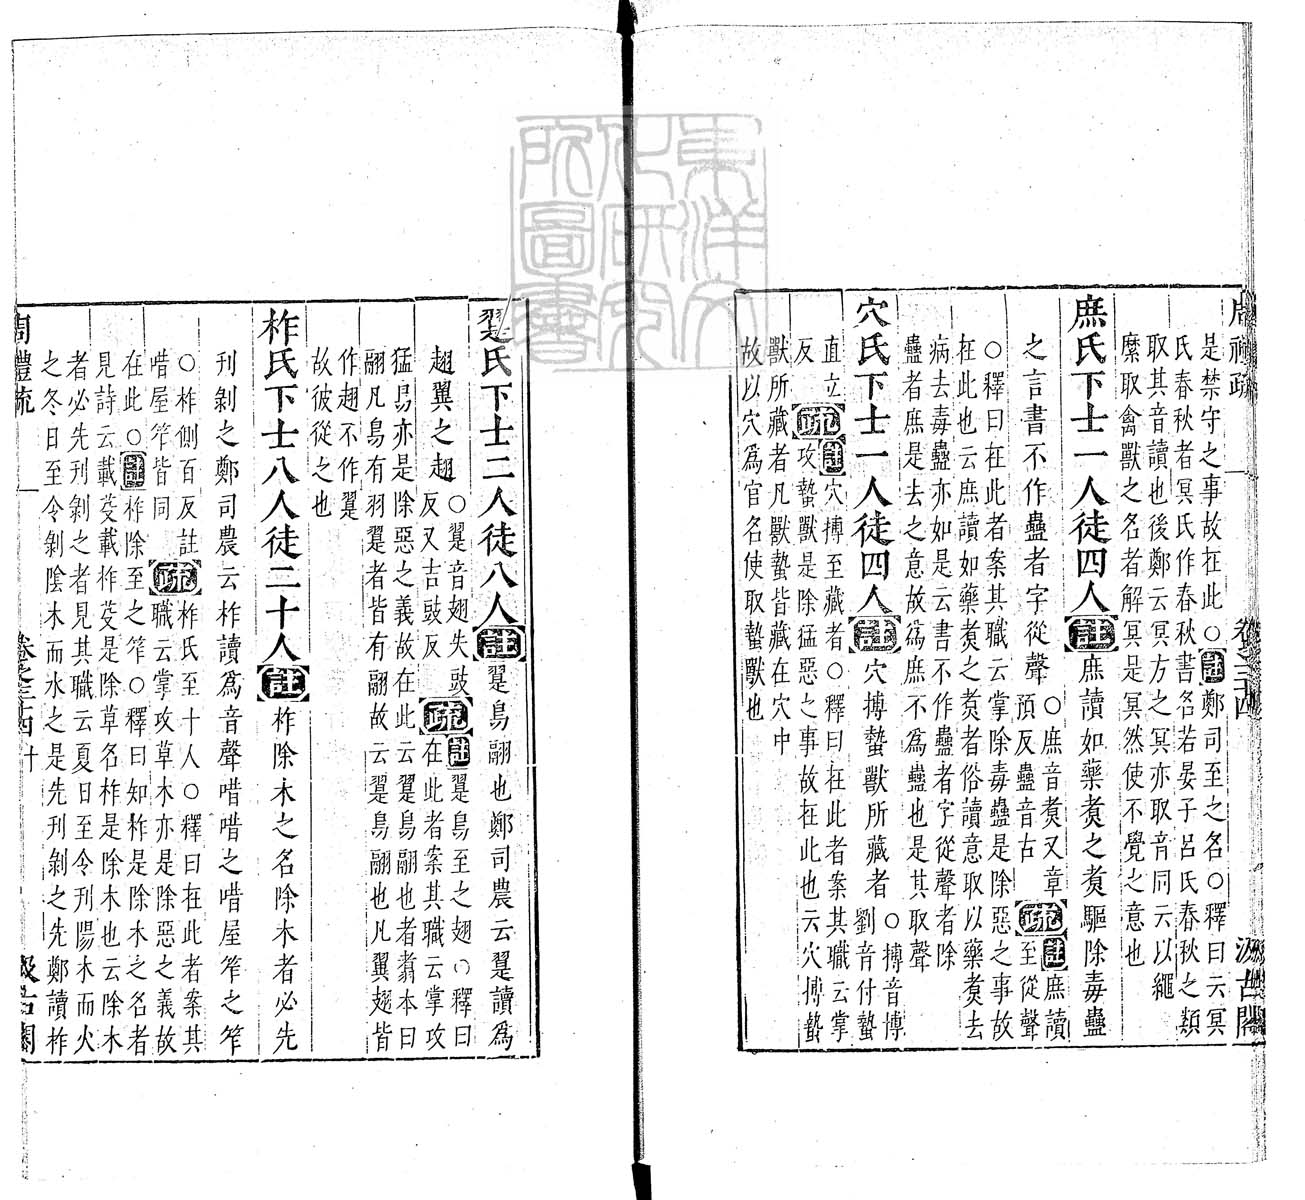 周禮疏 卷之三十四 汲古閣
是禁守之事故在此○註鄭司至之名○釋曰云冥
氏春秋者冥氏作春秋書名若晏子呂氏春秋之類
取其音讀也後鄭云冥方之冥亦取音同云以繩
縻取禽獸之名者解冥是冥然使不覺之意也
庶氏下士一人徒四人註庶讀如藥煑之煑驅除毒蠱
之言書不作蠱者字從聲○庶音煑又章
預反蠱音古疏註庶讀
至從聲
○釋曰在此者案其職云掌除毒蠱是除惡之事故
在此也云庶讀如藥煑之煑者俗讀意取以藥煑去
病去毒蠱亦如是云書不作蠱者字從聲者除
蠱者庶是去之意故爲庶不爲蠱也是其取聲
穴氏下士一人徒四人註穴搏蟄獸所藏者○搏音博
劉音付蟄
直立
反疏註穴搏至藏者○釋曰在此者案其職云掌
攻蟄獸是除猛惡之事故在此也云穴搏蟄
獸所藏者凡獸蟄皆藏在穴中
故以穴爲官名使取蟄獸也
翨氏下士二人徒八人註翨鳥翮也鄭司農云翨讀爲
翅翼之翅○翨音翅失豉
反又吉豉反疏註翨鳥至之翅○釋曰
在此者案其職云掌攻
猛鳥亦是除惡之義故在此云翨鳥翮也者翥本曰
翮凡鳥有羽翨者皆有翮故云翨鳥翮也凡翼翅皆
作翅不作翨
故彼從之也
柞氏下士八人徒二十人註柞除木之名除木者必先
刊剝之鄭司農云柞讀爲音聲唶唶之唶屋笮之笮
○柞側百反註
唶屋笮皆同疏柞氏至十人○釋曰在此者案其
職云掌攻草木亦是除惡之義故
在此○註柞除至之笮○釋曰知柞是除木之名者
見詩云載芟載柞芟是除草名柞是除木也云除木
者必先刊剝之者見其職云夏日至令刊陽木而火
之冬日至令剝陰木而水之是先刊剝之先鄭讀柞
周禮疏 卷之三十四 十 汲古閣